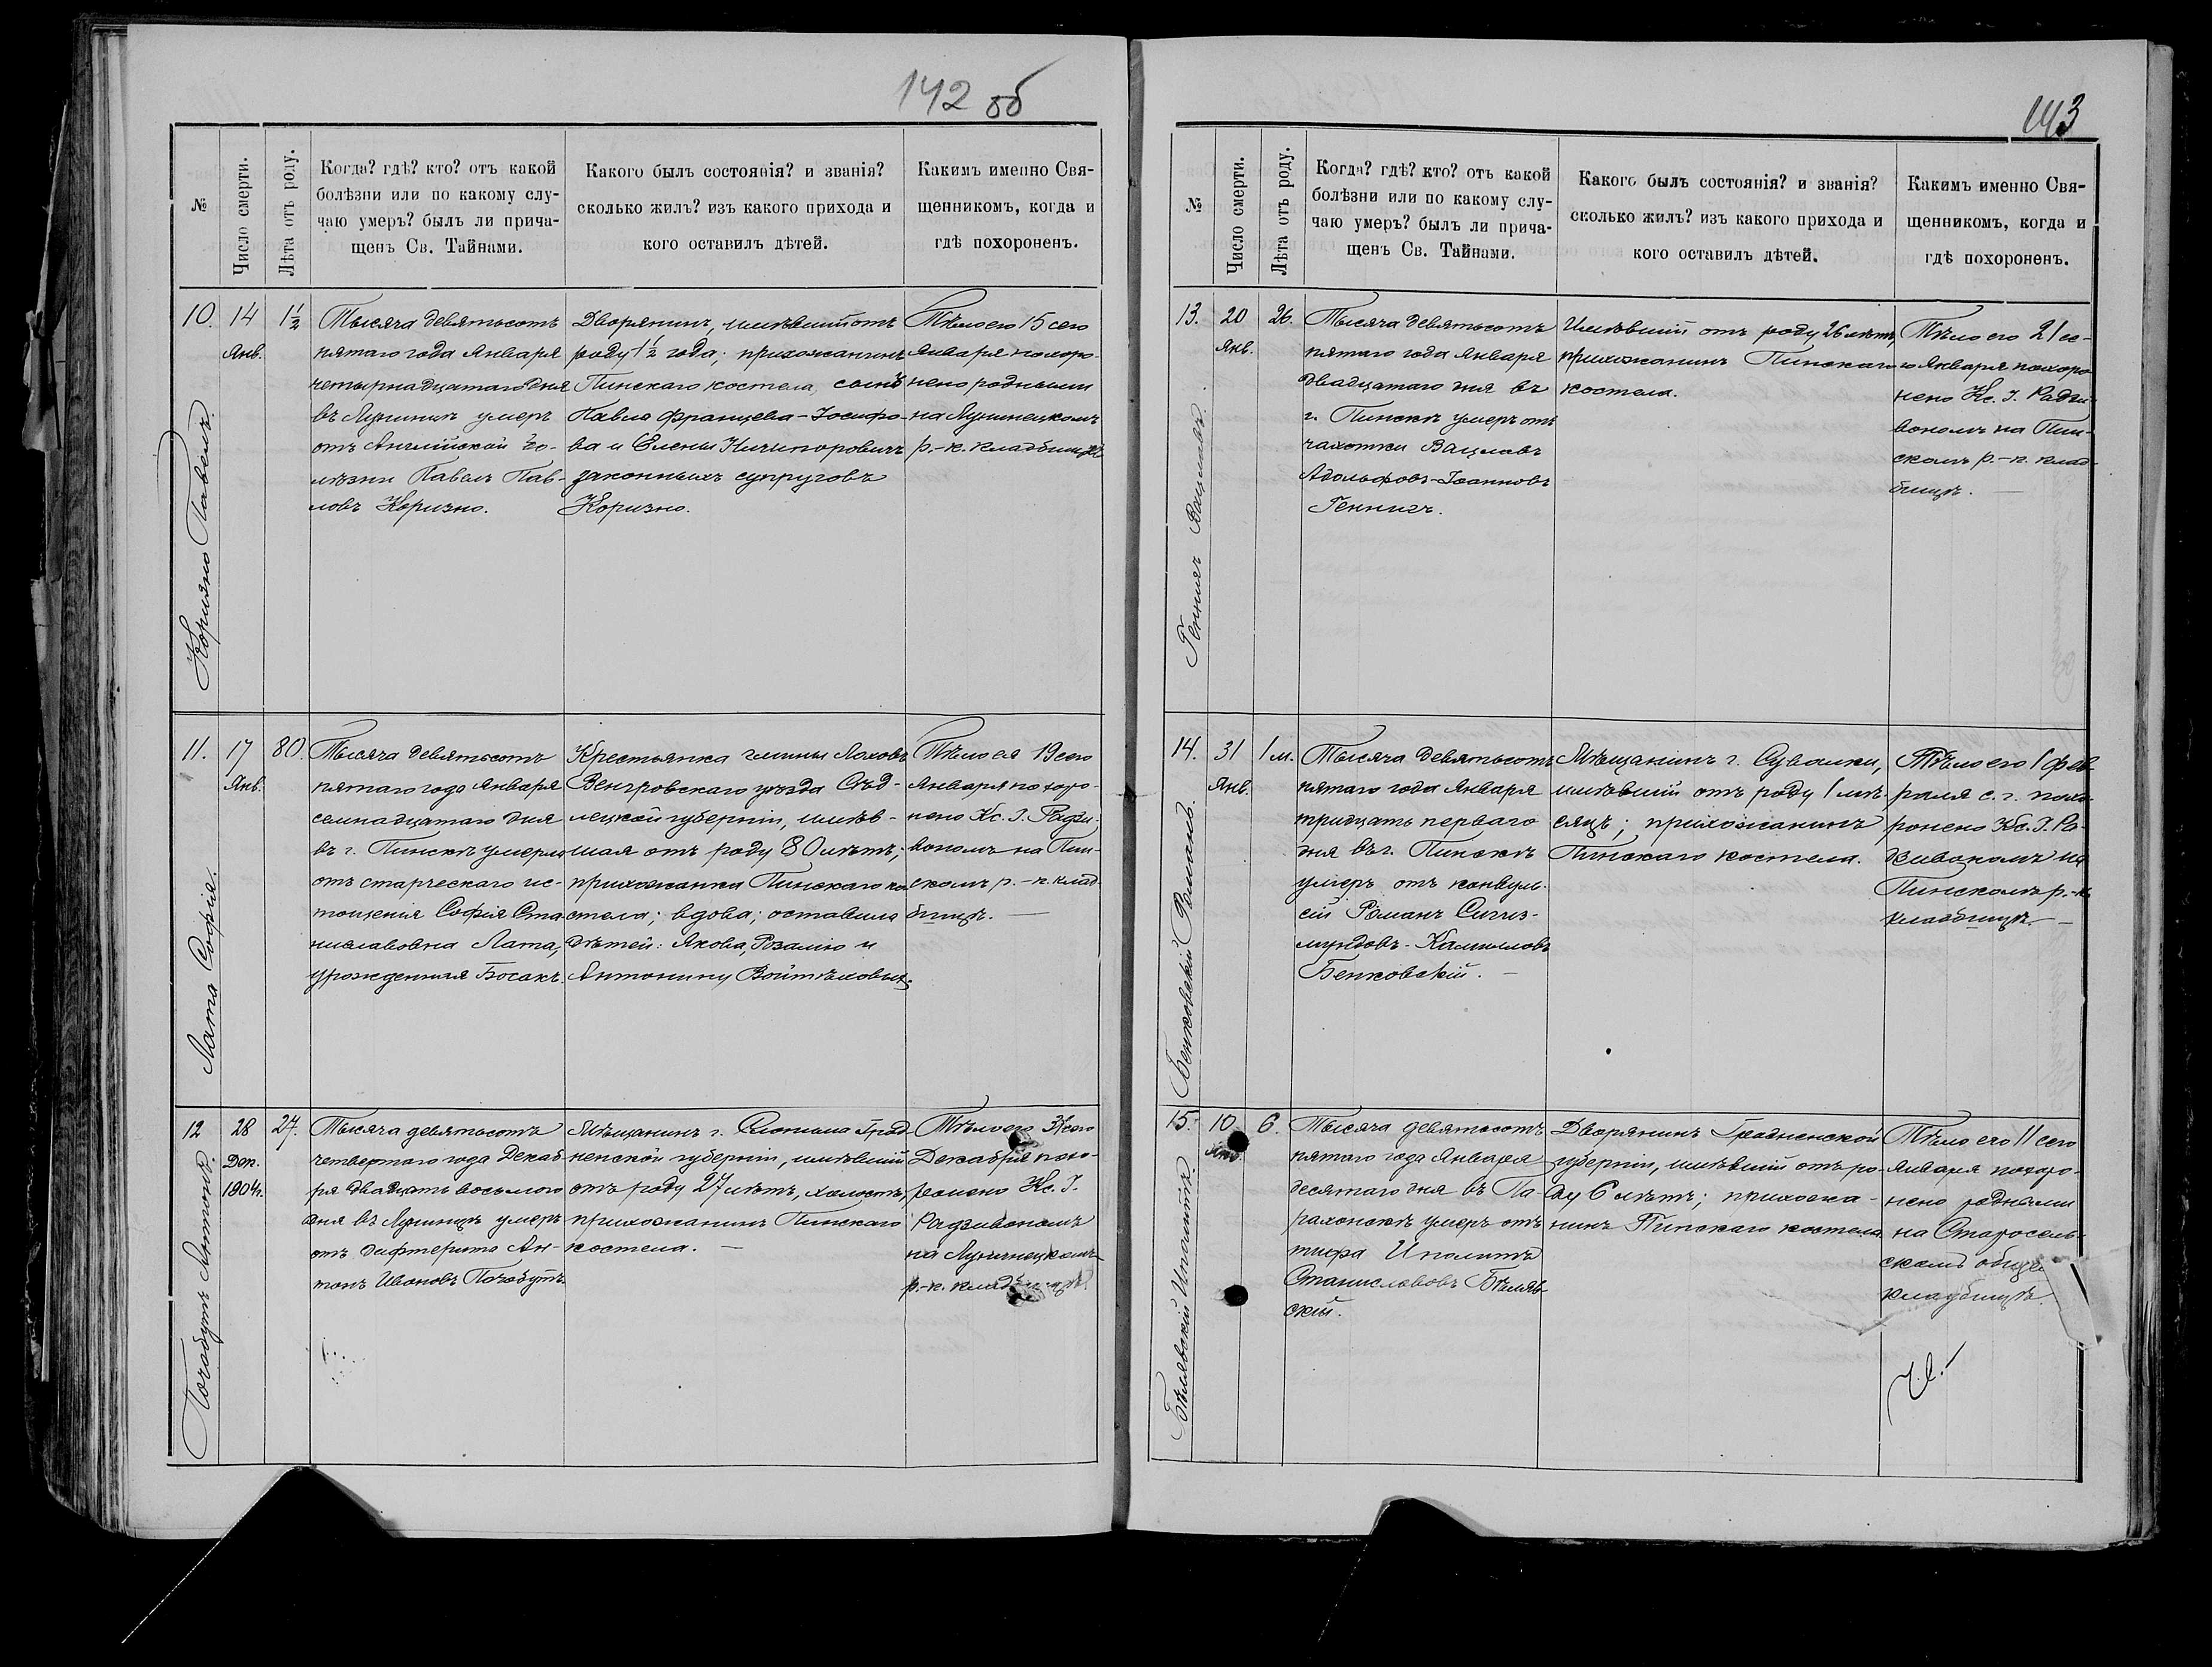 142 об
№
Число смерти.
Лѣта отъ роду.
Когда? гдѣ? кто? отъ какой
болѣзни или по какому слу-
чаю умеръ? былъ ли прича-
щенъ Св. Тайнами.
Какого былъ состоянія? и званія?
сколько жилъ? изъ какого прихода и
кого оставилъ дѣтей.
Какимъ именно Свя-
щенникомъ, когда и
гдѣ похороненъ.
10.
Коризно Павелъ.
14
Янв.
1½
Тысяча девятьсотъ
пятаго года Января
четырнадцатаго дня
въ Лунинцѣ умеръ
отъ Англійской бо-
лѣзни Павелъ Пав-
ловъ Коризно.
Дворянинъ, имѣвшій отъ
роду 1½ года; прихожанинъ
Пинскаго костела, сынъ
Павла Францева-Іосифо-
ва и Елены Ничипоровичъ
законныхъ супруговъ
Коризно.
Тѣло его 15 сего
Января похоро-
нено родными
на Лунинецкомъ
р.-к. кладбищѣ
11.
Лата Софія.
17
Янв.
80.
Тысяча девятьсотъ
пятаго года Января
семнадцатаго дня
въ г. Пинскѣ умерла
отъ старческаго ис-
тощенія Софія Ста-
ниславовна Лата,
урожденная Босакъ.
Крестьянка гмины Ляховъ
Венгровскаго уѣзда Сѣд-
лецкой губерніи, имѣв-
шая отъ роду 80 лѣтъ;
прихожанка Пинскаго ко-
стела; вдова; оставила
дѣтей: Якова, Розалію и
Антонину Войтѣховыхъ.
Тѣло ея 19 сего
Января похоро-
нено Кс. І. Радзи-
вономъ на Пин-
скомъ р.-к. клад-
бищѣ.
12
Почобутъ Антонъ.
28
Дек.
1904 г.
27.
Тысяча девятьсотъ
четвертаго года Декаб-
ря двадцать восьмого
дня въ Лунинцѣ умеръ
отъ дифтерита Ан-
тонъ Ивановъ Почобутъ
Мѣщанинъ г. Слонима Грод-
ненской губерніи, имѣвшій
отъ роду 27 лѣтъ, холостъ,
прихожанинъ Пинскаго
костела.
Тѣло его 31 сего
Декабря похо-
ронено Кс. І.
Радзивономъ
на Лунинецкомъ
р.-к. кладбищѣ.
143
№
Число смерти.
Лѣта отъ роду.
Когда? гдѣ? кто? отъ какой
болѣзни или по какому слу-
чаю умеръ? былъ ли прича-
щенъ Св. Тайнами.
Какого былъ состоянія? и званія?
сколько жилъ? изъ какого прихода и
кого оставилъ дѣтей.
Какимъ именно Свя-
щенникомъ, когда и
гдѣ похороненъ.
13.
Геннигъ Вацлавъ.
20
Янв.
26.
Тысяча девятьсотъ
пятаго года Января
двадцатаго дня въ
г. Пинскѣ умеръ отъ
чахотки Вацлавъ
Адольфовъ-Іоанновъ
Геннигъ.
Имѣвшій отъ роду 26 лѣтъ,
прихожанинъ Пинскаго
костела.
Тѣло его 21 се-
го Января похоро-
нено Кс. І. Радзи-
вономъ на Пин-
скомъ р.-к. клад-
бищѣ.
14.
Бенковскій Романъ.
31
Янв.
1 м.
Тысяча девятьсотъ
пятаго года Января
тридцать перваго
дня въ г. Пинскѣ
умеръ отъ конвуль-
сій Романъ Сигиз-
мундовъ-Камилловъ
Бенковскій.
Мѣщанинъ г. Сувалки,
имѣвшій отъ роду 1 мѣ-
сяцъ; прихожанинъ
Пинскаго костела.
Тѣло его 1 фев-
раля с. г. похо-
ронено Кс. І. Ра-
дзивономъ на
Пинскомъ р.-к.
кладбищѣ.
15.
Бѣлявскій Иполитъ.
10
Янв.
6.
Тысяча девятьсотъ
пятаго года Января
десятаго дня въ Па-
рахонскѣ умеръ отъ
тифа Иполитъ
Станиславовъ Бѣляв-
скій.
Дворянинъ Гродненской
губерніи, имѣвшій отъ ро-
ду 6 лѣтъ; прихожа-
нинъ Пинскаго костела.
Тѣло его 11 сего
Января похоро-
нено родными
на Старосель-
скомъ общ.
кладбищѣ.